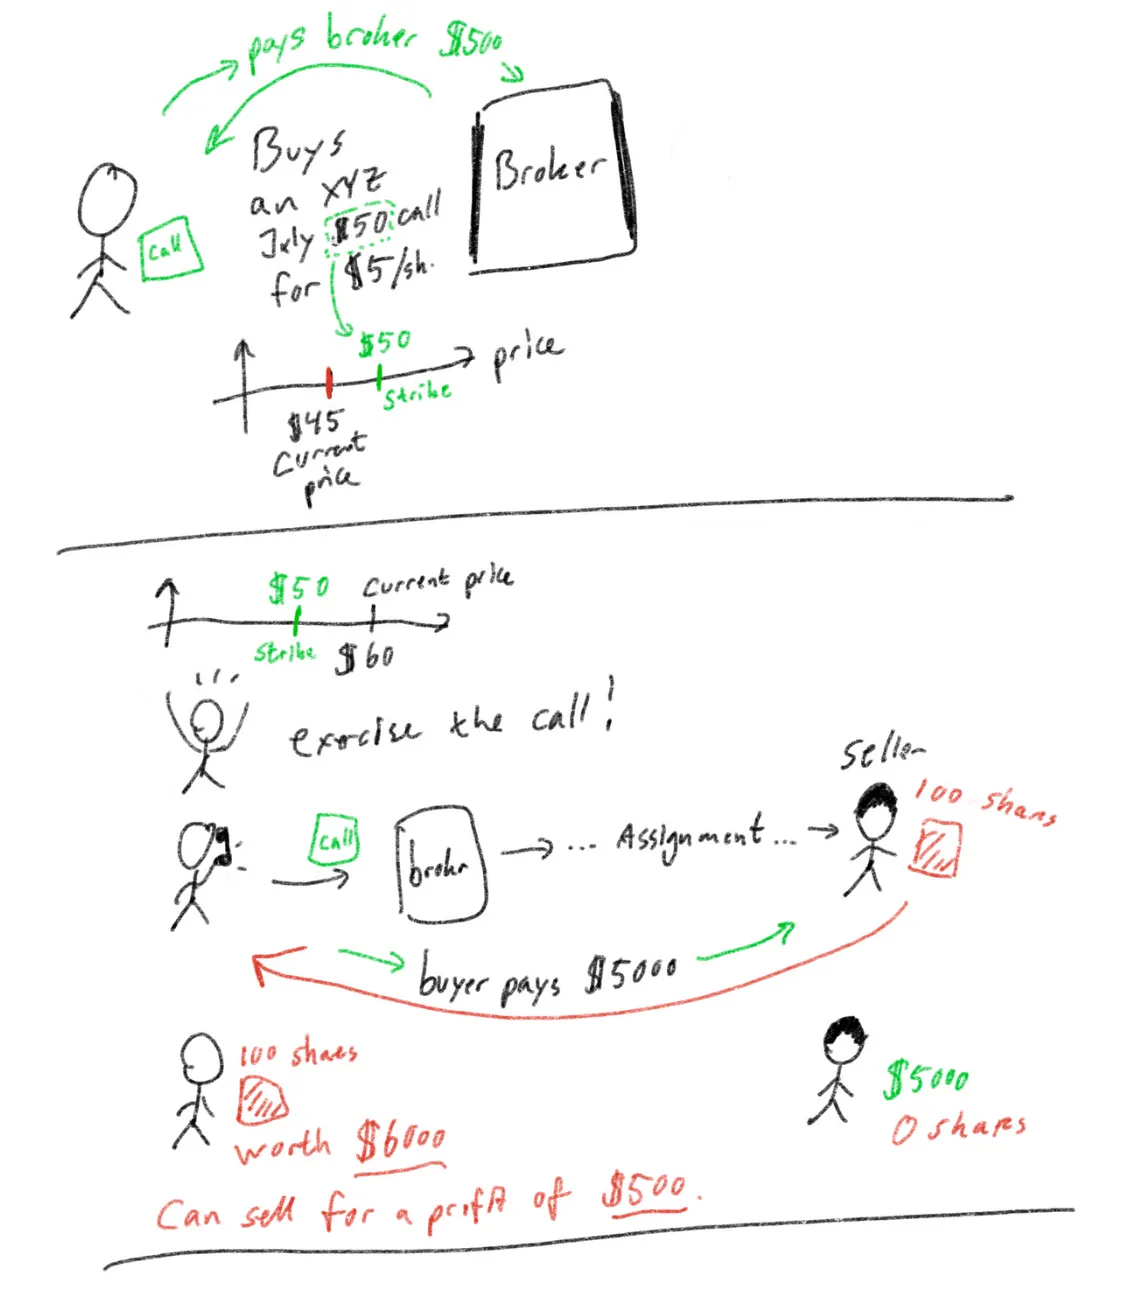 pays broker $500
Buys
an XYZ
July $50 call
for $5/sh.
call
Broker
$50
strike
price
$45
current
price
$50
current price
strike
$60
exercise the call!
seller
100 shares
call
broker
... Assignment...
buyer pays $5000
100 shares
worth $6000
$5000
0 shares
Can sell for a profit of $500.